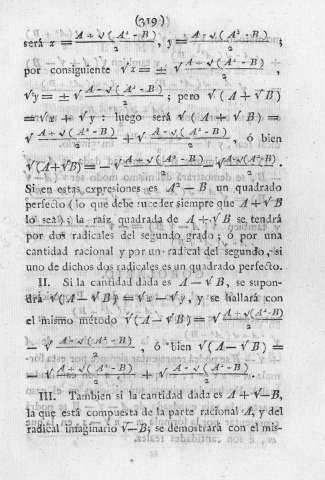 (319)
será x = A+√(A²-B)/2 , y = A-√(A²-B)/2 ;
por consiguiente √x = ± √ A+√(A²-B)/2 ,
√y = ± √ A-√(A²-B)/2 ; pero √(A+√B)
= √x + √y : luego será √(A+√B) =
√ A+√(A²-B)/2 + √ A-√(A²-B)/2 , ó bien
√(A+√B) = -√ A+√(A²-B)/2 - √ A-√(A²-B)/2 .
Si en estas expresiones es A² - B un quadrado
perfecto (lo que debe suceder siempre que A+√B
lo sea); la raiz quadrada de A+√B se tendrá
por dos radicales del segundo grado; ó por una
cantidad racional y por un radical del segundo, si
uno de dichos dos radicales es un quadrado perfecto.
II. Si la cantidad dada es A-√B, se supon-
drá √(A-√B) = √x-√y, y se hallará con
el mismo método √(A-√B) = √ A+√(A²-B)/2
- √ A-√(A²-B)/2 , ó bien √(A-√B) =
-√ A+√(A²-B)/2 + √ A-√(A²-B)/2 .
III. Tambien si la cantidad dada es A+√-B,
la que está compuesta de la parte racional A, y del
radical imaginario √-B; se demostrará con el mis-